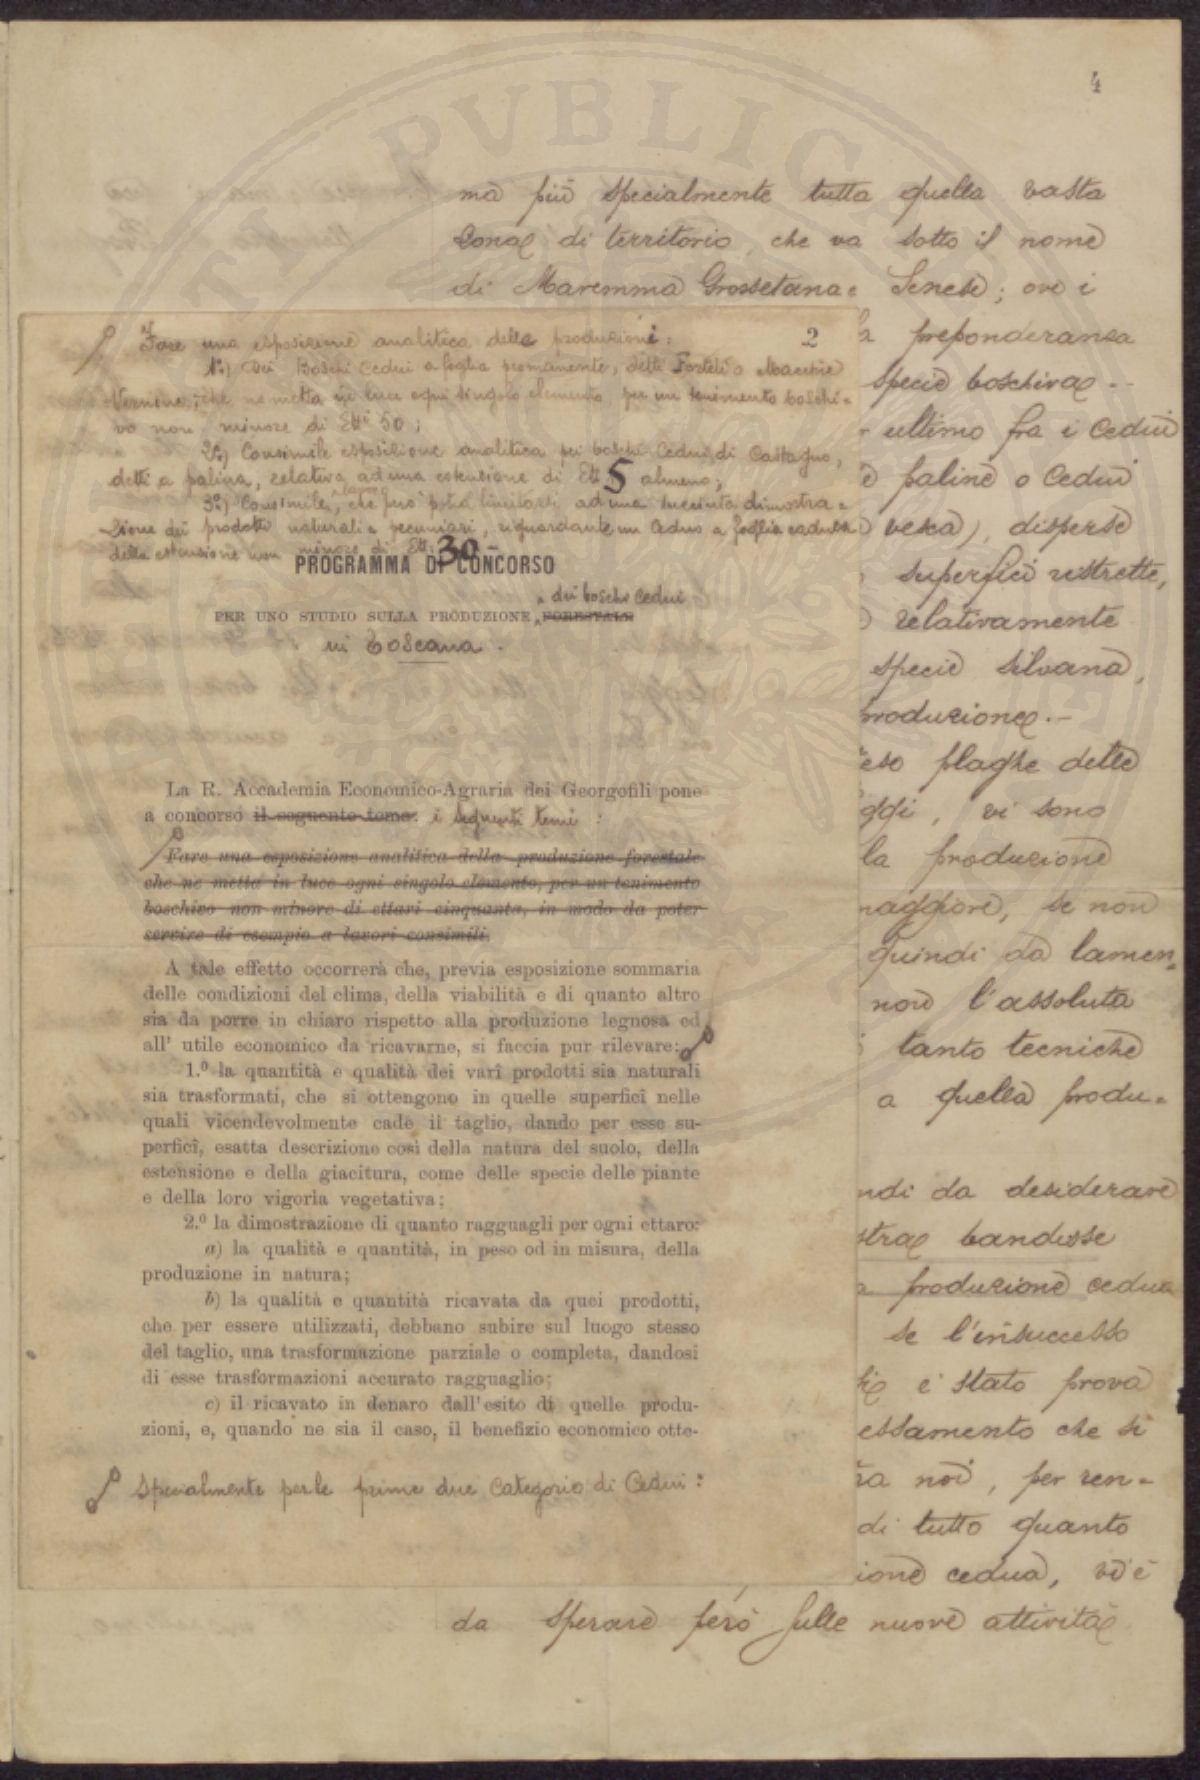 4
ma più specialmente tutta quella vasta
zona di territorio, che va sotto il nome
di Maremma Grossetana e Senese; ove i
preponderanza
specie boschiva.-
ultimo fra i cedui
paline o cedui
vesca), disperse
superfici ristrette,
relativamente
specie silvana,
produzione.-
eso plaghe delle
ggi, vi sono
la produzione
maggiore, se non
quindi da lamen=
non l'assoluta
tanto tecniche
a quella produ=
ndi da desiderare
stra bandisse
produzione cedua
se l'insuccesso
è stato prova
essamento che si
ra noi, per ren=
di tutto quanto
ione cedua, vi è
da sperare però sulle nuove attività
2
Fare una esposizione analitica delle produzioni:
1º) Dei Boschi Cedui a foglia permanente, detti Forteti o Macchie
Vernine; che ne metta in luce ogni singolo elemento, per un tenimento boschi=
vo non minore di Ett. 50;
2º) Consimile esposizione analitica pei boschi Cedui di Castagno,
detti a palina, relativa ad una estensione di Ett. 5 almeno;
3º) Consimile, che però potrà limitarsi ad una succinta dimostra=
zione dei prodotti naturali e pecuniari, riguardante un Ceduo a foglia caduca
della estensione non minore di Ett. 30
PROGRAMMA DI CONCORSO
dei boschi cedui
PER UNO STUDIO SULLA PRODUZIONE FORESTALE
in Toscana.
La R. Accademia Economico-Agraria dei Georgofili pone
a concorso il seguente tema: i seguenti temi:
Fare una esposizione analitica della produzione forestale
che ne metta in luce ogni singolo elemento, per un tenimento
boschivo non minore di ettari cinquanta, in modo da poter
servire di esempio a lavori consimili.
A tale effetto occorrerà che, previa esposizione sommaria
delle condizioni del clima, della viabilità e di quanto altro
sia da porre in chiaro rispetto alla produzione legnosa ed
all' utile economico da ricavarne, si faccia pur rilevare:
1.º la quantità e qualità dei varî prodotti sia naturali
sia trasformati, che si ottengono in quelle superficî nelle
quali vicendevolmente cade il taglio, dando per esse su-
perficî, esatta descrizione così della natura del suolo, della
estensione e della giacitura, come delle specie delle piante
e della loro vigoria vegetativa;
2.º la dimostrazione di quanto ragguagli per ogni ettaro:
a) la qualità e quantità, in peso od in misura, della
produzione in natura;
b) la qualità e quantità ricavata da quei prodotti,
che per essere utilizzati, debbano subire sul luogo stesso
del taglio, una trasformazione parziale o completa, dandosi
di esse trasformazioni accurato ragguaglio;
c) il ricavato in denaro dall'esito di quelle produ-
zioni, e, quando ne sia il caso, il benefizio economico otte-
specialmente per le prime due categorie di Cedui: